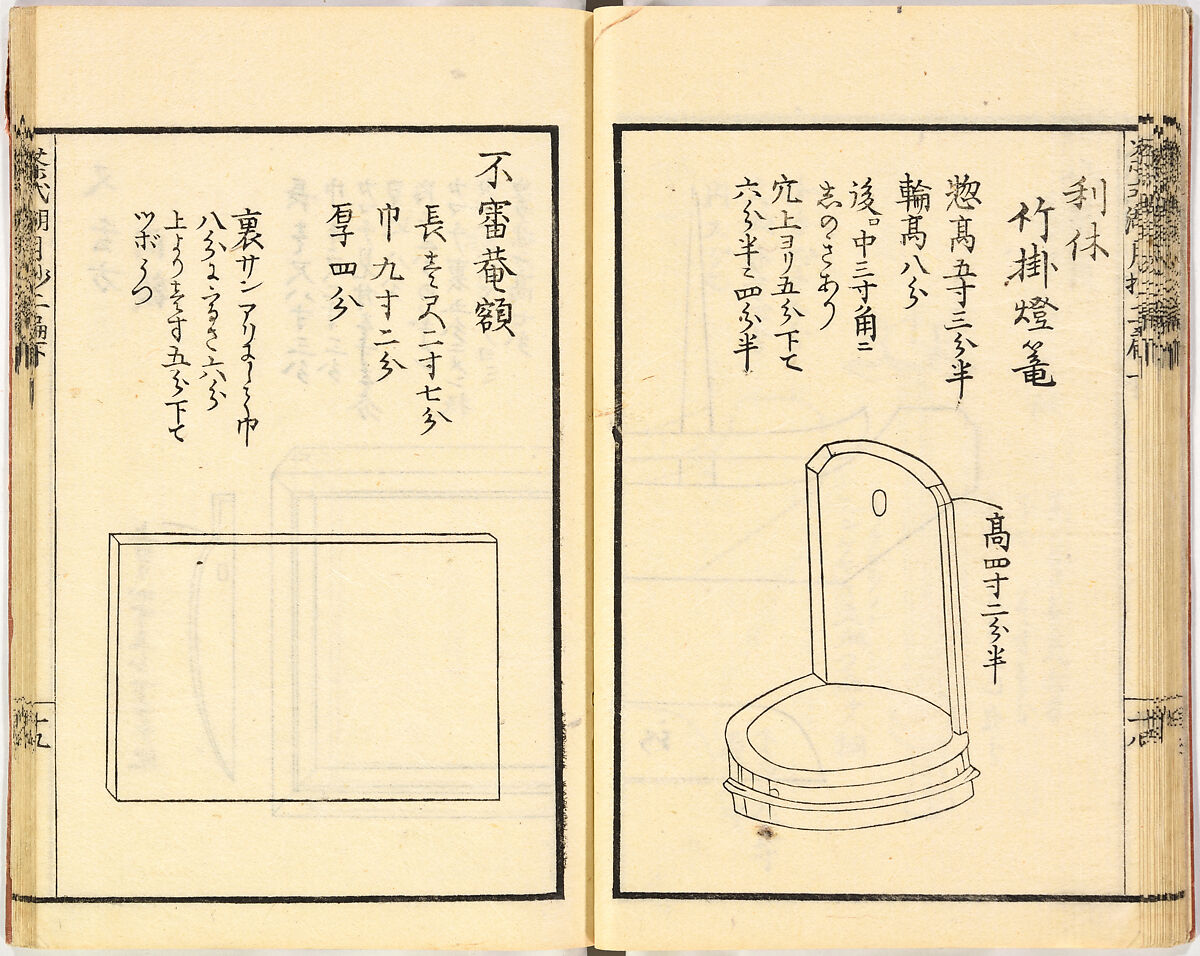 利休
竹掛燈篭
惣高五寸三分半
輪高八分
後ロ中三寸角ニ
志のきあり
穴上ヨリ五分下て
六分半ニ四分半
高四寸二分半
十八
不審菴額
長壱尺二寸七分
巾九寸二分
厚四分
裏サンアリ
八分ニあつさ六分
上より壱寸五分下て
ツボうつ
十九